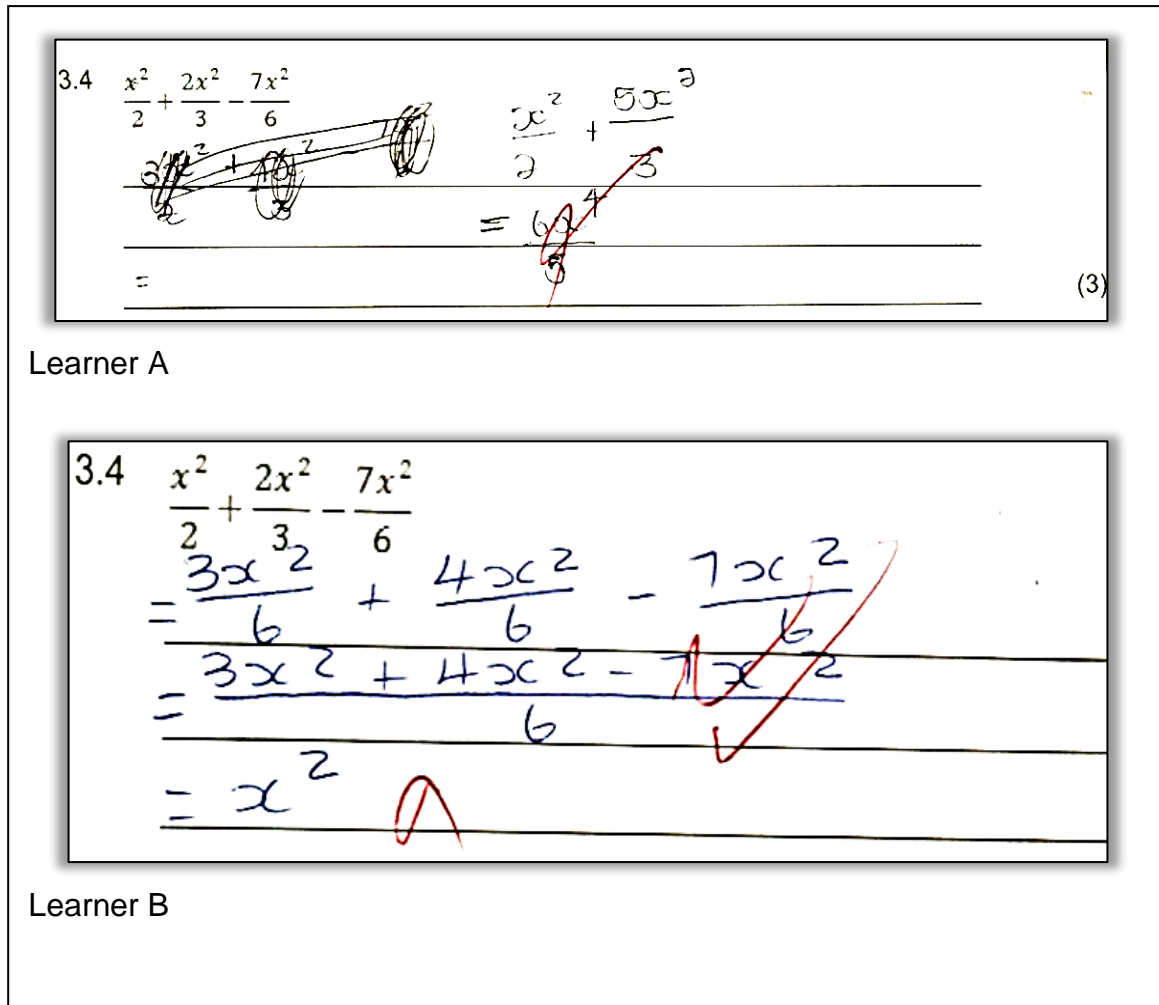 3.4 x²/2 + 2x²/3 - 7x²/6
x²/2 + 5x²/3
= 6x⁴/5
=
(3)
Learner A
3.4 x²/2 + 2x²/3 - 7x²/6
= 3x²/6 + 4x²/6 - 7x²/6
= 3x² + 4x² - 7x²/6
= x²
Learner B